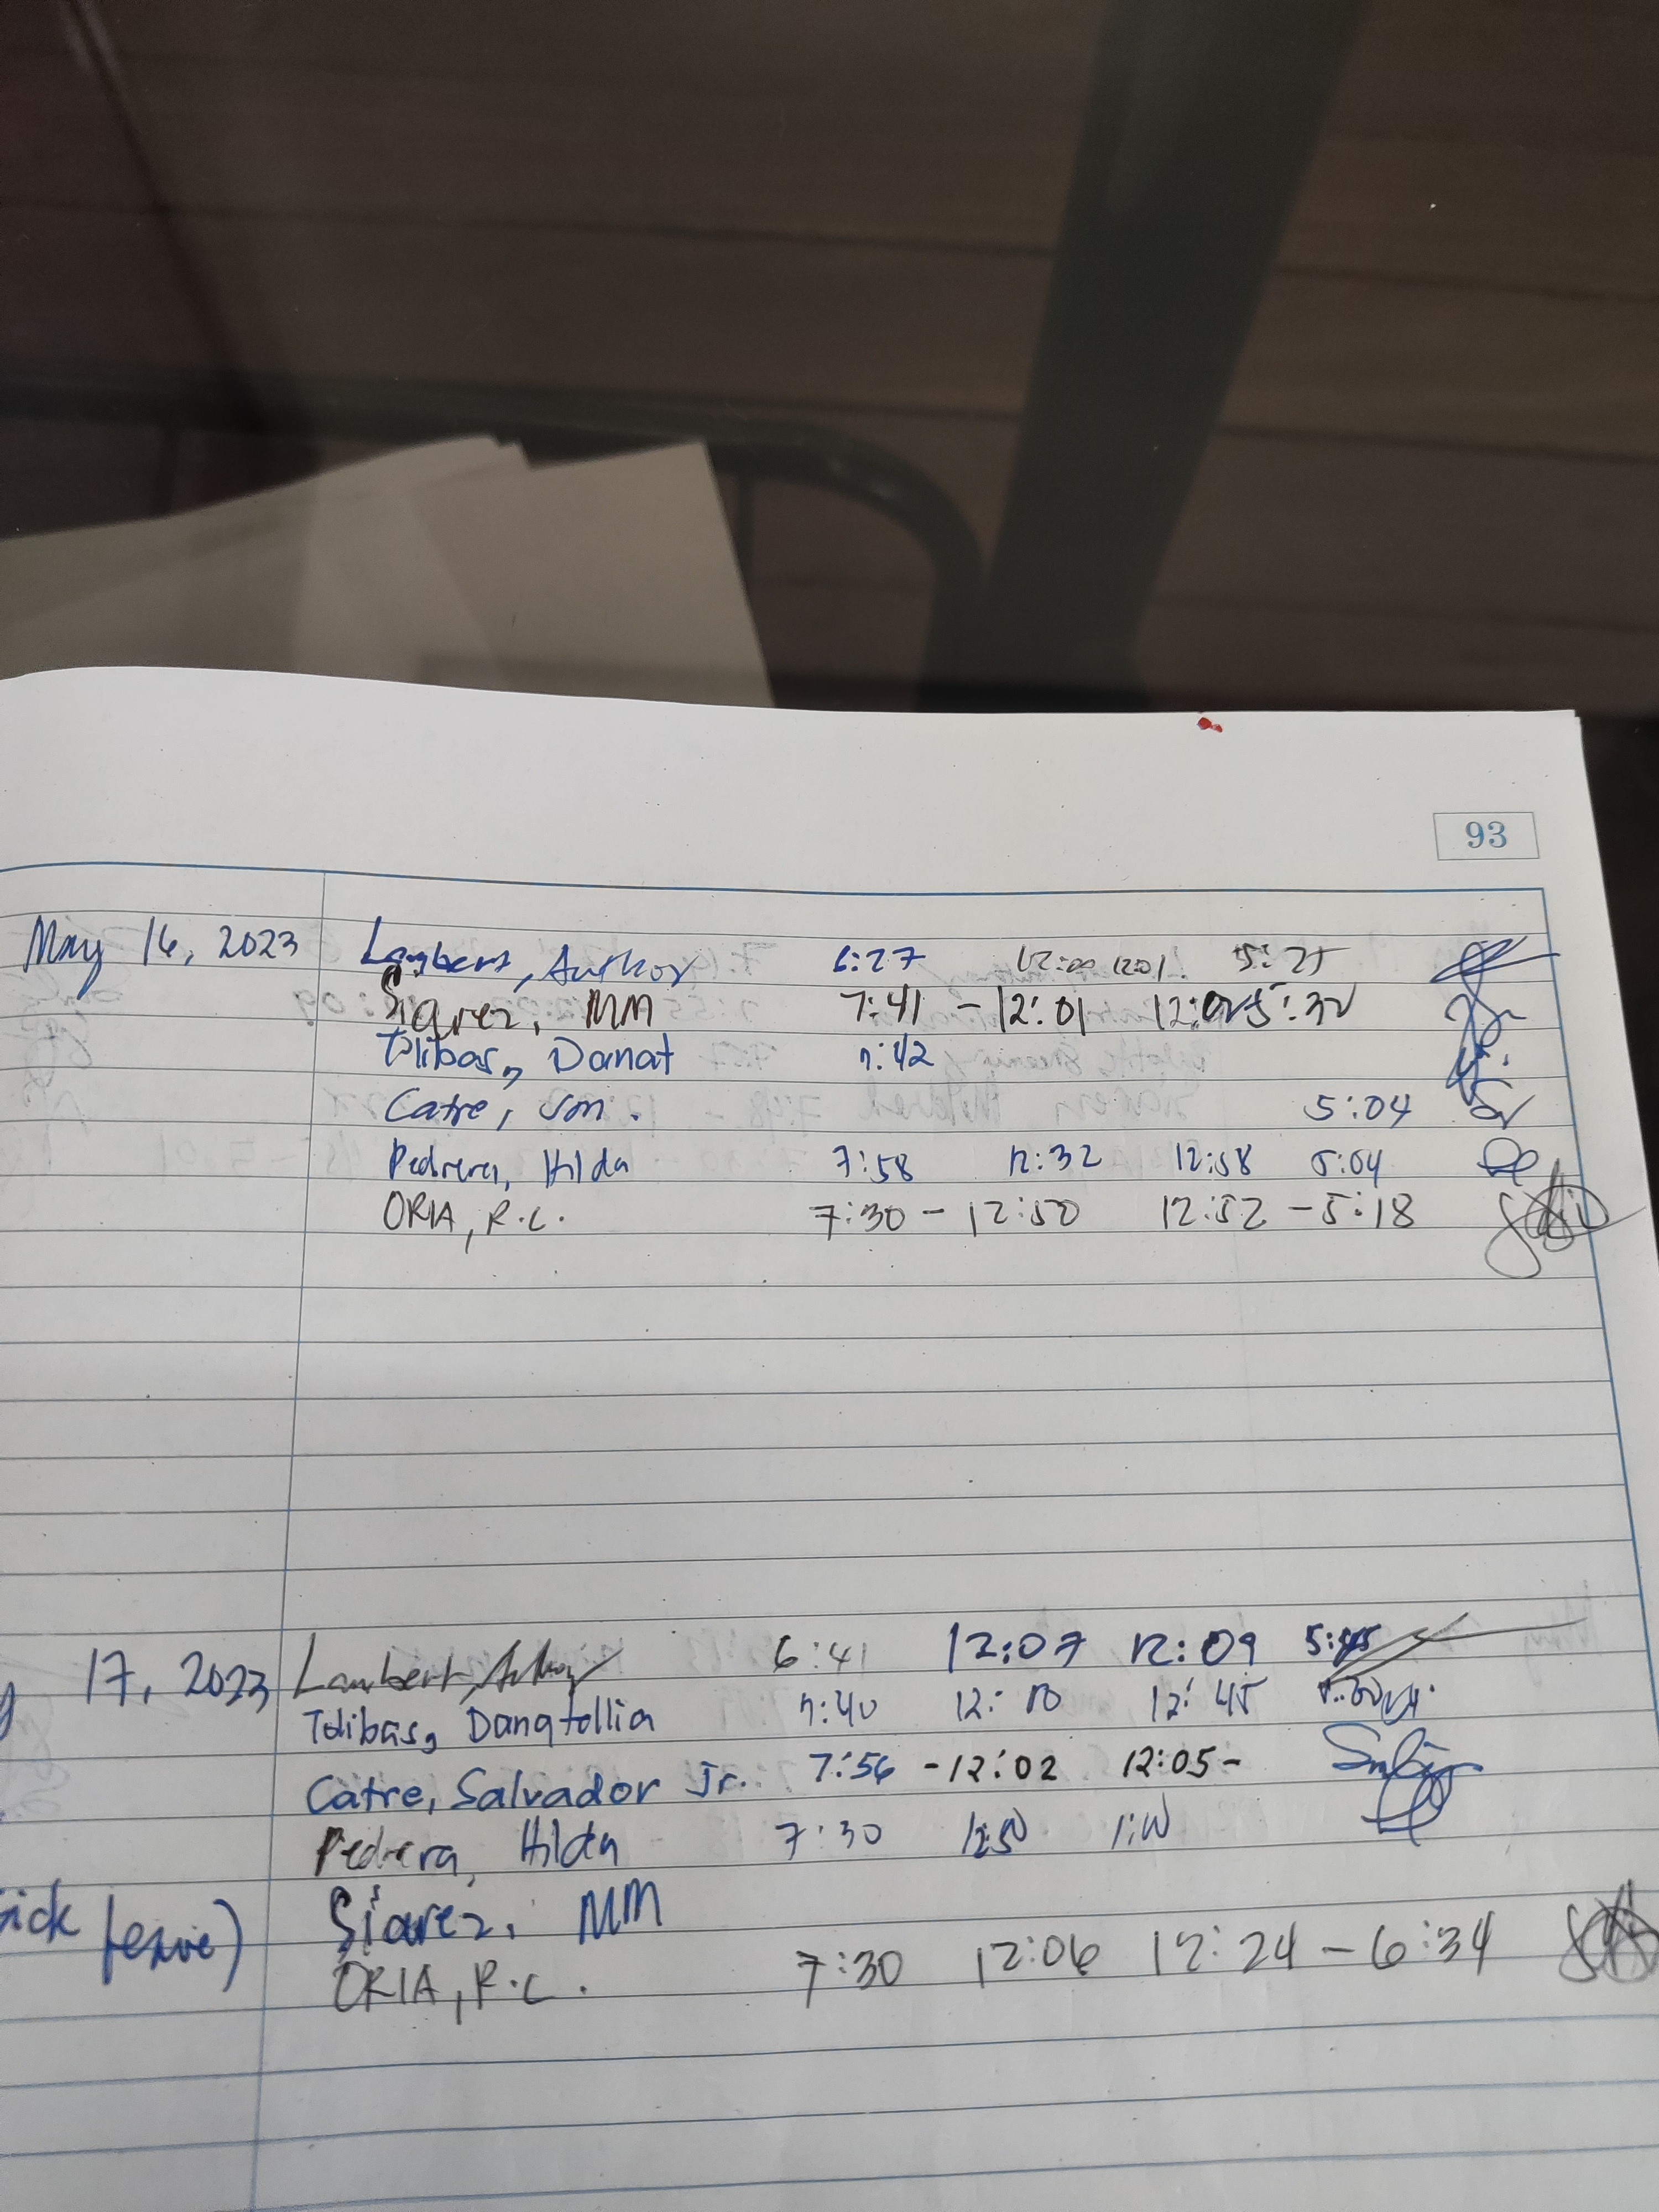 93
May 16, 2023 Lambert, Author 6:27 12:00 12:01 5:25
Siarez, MM 7:41 - 12:01 12:02 5:32
Tolibas, Danat 7:42
Catre, Jon. 5:04
Pedrera, Hilda 7:58 12:32 12:58 5:04
ORIA, R.C. 7:30 - 12:50 12:52 - 5:18
17, 2023 Lambert, 6:41 12:07 12:09
Tolibas, Danqtollia 7:40 12:10 12:45
Catre, Salvador Jr. 7:56 - 12:02 12:05 -
Pedrera, Hilda 7:30 12:50 1:00
Sick leave) Siarez, MM
ORIA, R.C. 7:30 12:06 12:24 - 6:34